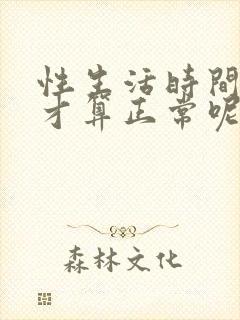 性生活時間
才算正常呢
森林文化